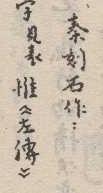 秦刻石作：
字見表惟《左傳》